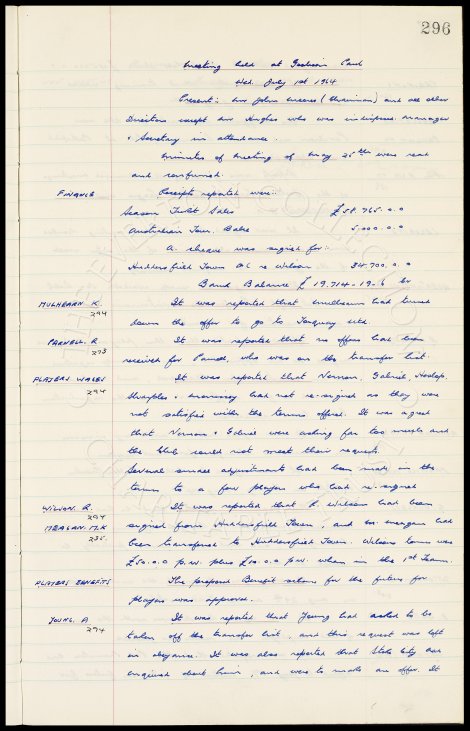 296
Meeting held at Goodison Park
Wed. July 1st 1964
Present:- Mr John Moores (Chairman) and all other
Directors except Mr Hughes who was indisposed. Manager
& Secretary in attendance.
Minutes of meeting of May 25th were read
and confirmed.
FINANCE Receipts reported were:-
Season Ticket Sales £58,765.0.0
Australian Tour. Balce 5,000.0.0
A cheque was signed for:-
Huddersfield Town A/C re Wilson. 34,700.0.0
Bank Balance £19,714-19-6
MULHEARN K. It was reported that Mulhearn had turned
294 down the offer to go to Torquay Utd.
PARNELL. R It was reported that no offers had been
293 received for Parnell, who was on the transfer list.
PLAYERS WAGES It was reported that Vernon, Gabriel, Heslop,
294 Sharples & had not re-signed as they were
not satisfied with the terms offered. It was agreed
that Vernon & Gabriel were asking for too much and
the Club could not meet their requests.
Several minor adjustments had been made in the
terms to a few players who had re-signed
WILSON. R. It was reported that R. Wilson had been
294 signed from Huddersfield Town, and Mr Meagan had
MEAGAN. M.K been transferred to Huddersfield Town. Wilsons terms were
235 £50.0.0 p.w. plus £10.0.0 p.w. when in the 1st Team.
PLAYERS BENEFITS The proposed Benefit scheme for the future for
players was approved.
YOUNG. A It was reported that Young had asked to be
294 taken off the transfer list, and this request was left
in abeyance. It was also reported that Stoke City had
enquired about him, and were to make an offer. It